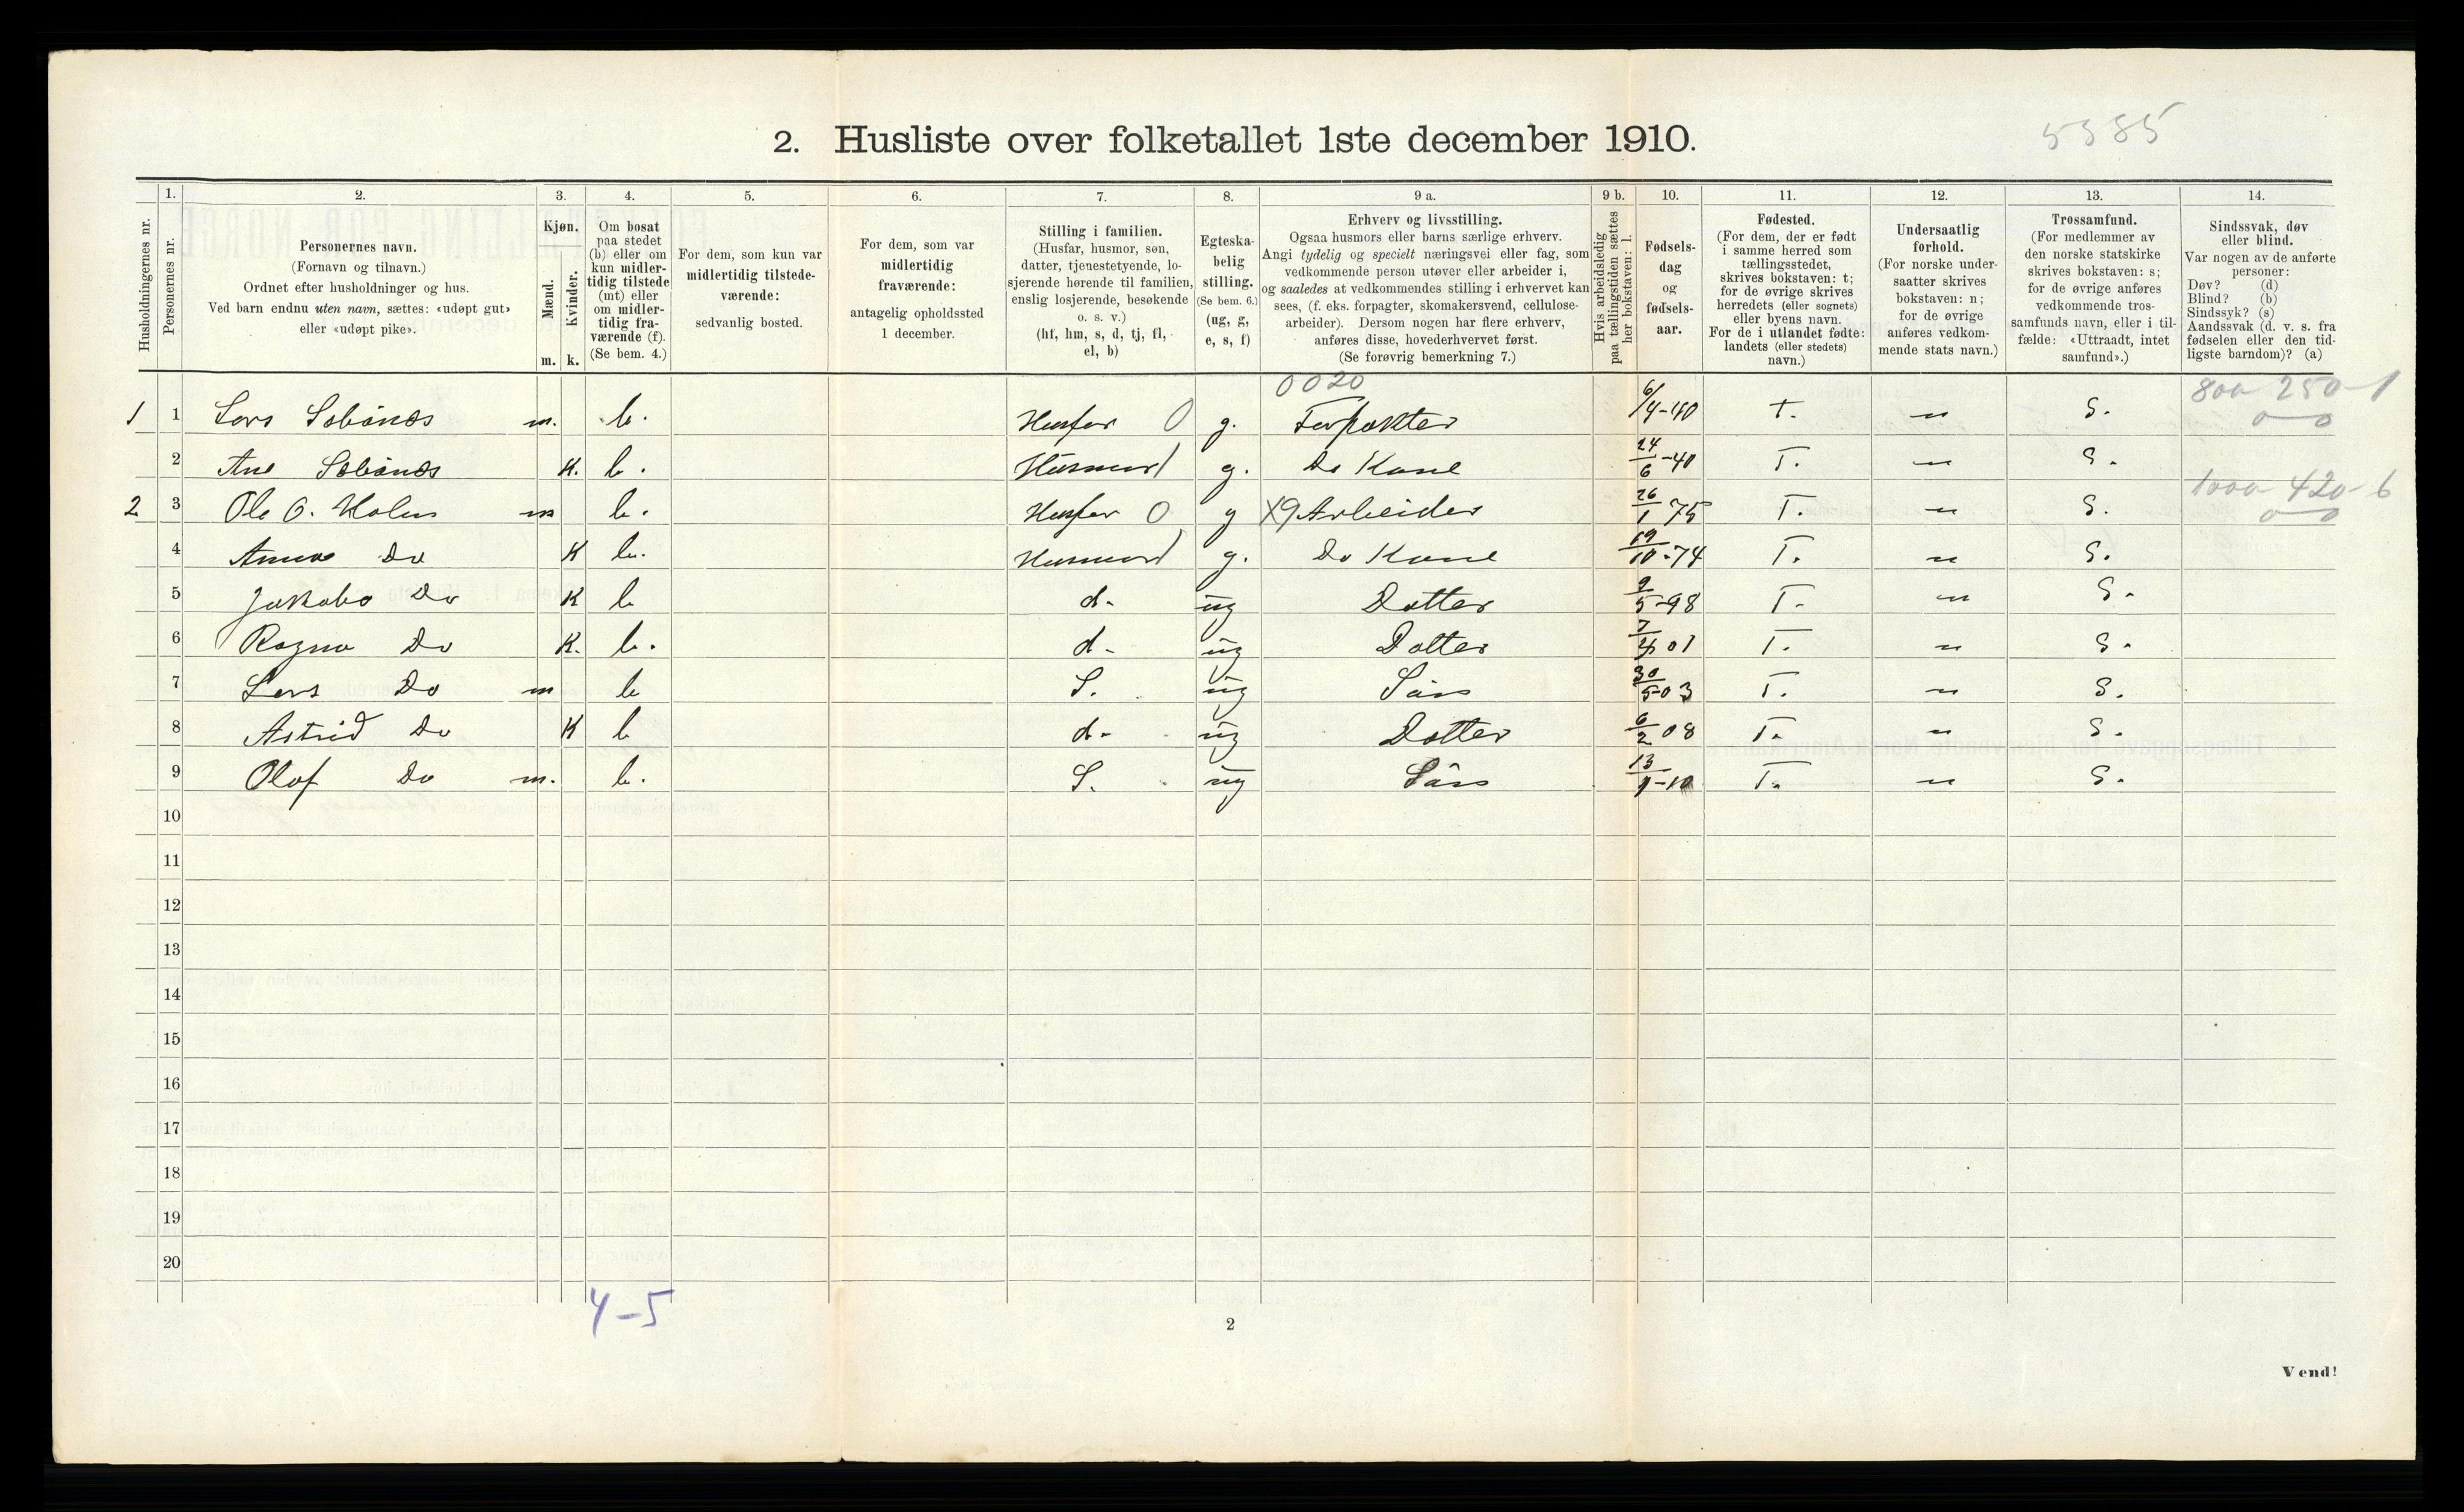 5385
2. Husliste over folketallet 1ste december 1910.
Husholdningernes nr.
1. Personernes nr.
2. Personernes navn. (Fornavn og tilnavn.) Ordnet efter husholdninger og hus. Ved barn endnu uten navn, sættes: «udøpt gut» eller «udøpt pike».
3. Kjøn. Mænd. m. Kvinder. k.
4. Om bosat paa stedet (b) eller om kun midlertidig tilstede (mt) eller om midlertidig fraværende (f). (Se bem. 4.)
5. For dem, som kun var midlertidig tilstedeværende: sedvanlig bosted.
6. For dem, som var midlertidig fraværende: antagelig opholdssted 1 december.
7. Stilling i familien. (Husfar, husmor, søn, datter, tjenestetyende, losjerende hørende til familien, enslig losjerende, besøkende o. s. v.) (hf, hm, s, d, tj, fl, el, b)
8. Egteskabelig stilling. (Se bem. 6.) (ug, g, e, s, f)
9 a. Erhverv og livsstilling. Ogsaa husmors eller barns særlige erhverv. Angi tydelig og specielt næringsvei eller fag, som vedkommende person utøver eller arbeider i, og saaledes at vedkommendes stilling i erhvervet kan sees, (f. eks. forpagter, skomakersvend, cellulosearbeider). Dersom nogen har flere erhverv, anføres disse, hovederhvervet først. (Se forøvrig bemerkning 7.)
9 b. Hvis arbeidsledig paa tællingstiden sættes her bokstaven: l.
10. Fødselsdag og fødselsaar.
11. Fødested. (For dem, der er født i samme herred som tællingsstedet, skrives bokstaven: t; for de øvrige skrives herredets (eller sognets) eller byens navn. For de i utlandet fødte: landets (eller stedets) navn.)
12. Undersaatlig forhold. (For norske undersaatter skrives bokstaven: n; for de øvrige anføres vedkommende stats navn.)
13. Trossamfund. (For medlemmer av den norske statskirke skrives bokstaven: s; for de øvrige anføres vedkommende trossamfunds navn, eller i tilfælde: «Uttraadt, intet samfund».)
14. Sindssvak, døv eller blind. Var nogen av de anførte personer: Døv? (d) Blind? (b) Sindssyk? (s) Aandssvak (d. v. s. fra fødselen eller den tidligste barndom)? (a)
0020 800 250-1
1 1 Lars m. b. Husfar 0 g. Forpakter 6/4-40 T. n S. 0 0
2 Ane K. b. Husmor g. Do Kone 24/6-40 T. n S.
1000 420-6
2 3 Ole O. Holen m b. Husfar 0 g X9 Arbeider 26/1 75 T. n S. 0 0
4 Anna Do K b. Husmor g. Do Kone 19/10-74 T. n S.
5 Jakoba Do K b d- ug Dotter 2/5-98 T- n S.
6 Ragna Do K. b. d- ug Dotter 7/4 01 T. n S.
7 Lars Do m b S. ug Søn 30/5-03 T. n S.
8 Astrid Do K b d- ug Dotter 6/2 08 T. n S.
9 Olaf Do m. b. S. ug Søn 13/1-10 T. n S.
10
11
12
13
14
15
16
17
18
19
20
4-5
2
Vend!